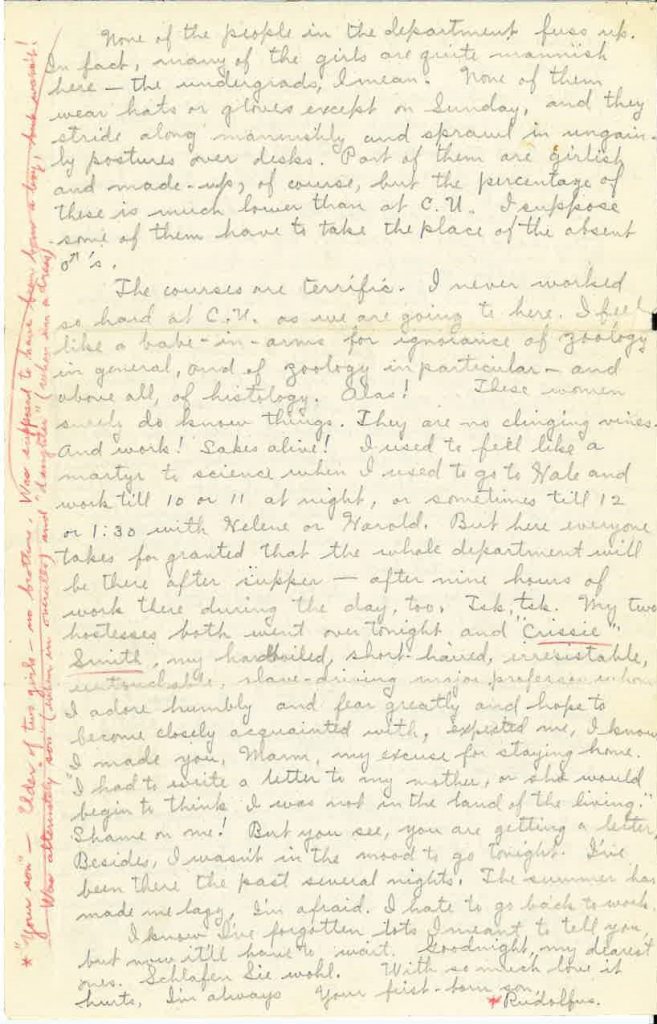 None of the people in the department fuss up.
In fact, many of the girls are quite mannish
here — the undergrads, I mean. None of them
wear hats or gloves except on Sunday, and they
stride along mannishly and sprawl in ungain-
ly postures over desks. Part of them are girlish
and made-up, of course, but the percentage of
these is much lower than at C.U. I suppose
some of them have to take the place of the absent
♂'s.
The courses are terrific. I never worked
so hard at C.U. as we are going to here. I feel
like a babe-in-arms for ignorance of zoology
in general, and of zoology in particular — and
above all, of histology. Alas! These women
surely do know things. They are no clinging vines.
And work! Sakes alive! I used to feel like a
martyr to science when I used to go to Hale and
work till 10 or 11 at night, or sometimes till 12
or 1:30 with Helene or Harold. But here everyone
takes for granted that the whole department will
be there after supper — after nine hours of
work there during the day, too. Tsk, tsk. My two
hostesses both went over tonight and "Crissie"
Smith, my hardboiled, short-haired, irresistable,
untouchable, slave-driving major professor whom
I adore humbly and fear greatly and hope to
become closely acquainted with, expected me, I know
I made you, Marm, my excuse for staying home.
"I had to write a letter to my mother, or she would
begin to think I was not in the land of the living."
Shame on me! But you see, you are getting a letter,
Besides, I wasn't in the mood to go tonight. I've
been there the past several nights. The summer has
made me lazy, I'm afraid. I hate to go back to work.
I know I've forgotten lots I meant to tell you,
but now it'll have to wait. Goodnight, my dearest
ones. Schlafen Sie wohl. With so much love it
hurts, I'm always Your first-born son,
* Rudolfus.
* "Your son" — Elder of two girls — no brothers. Was supposed to have been born a boy, but wasn't!
Was alternately "son" (when in overalls) and "daughter" (when in a dress)